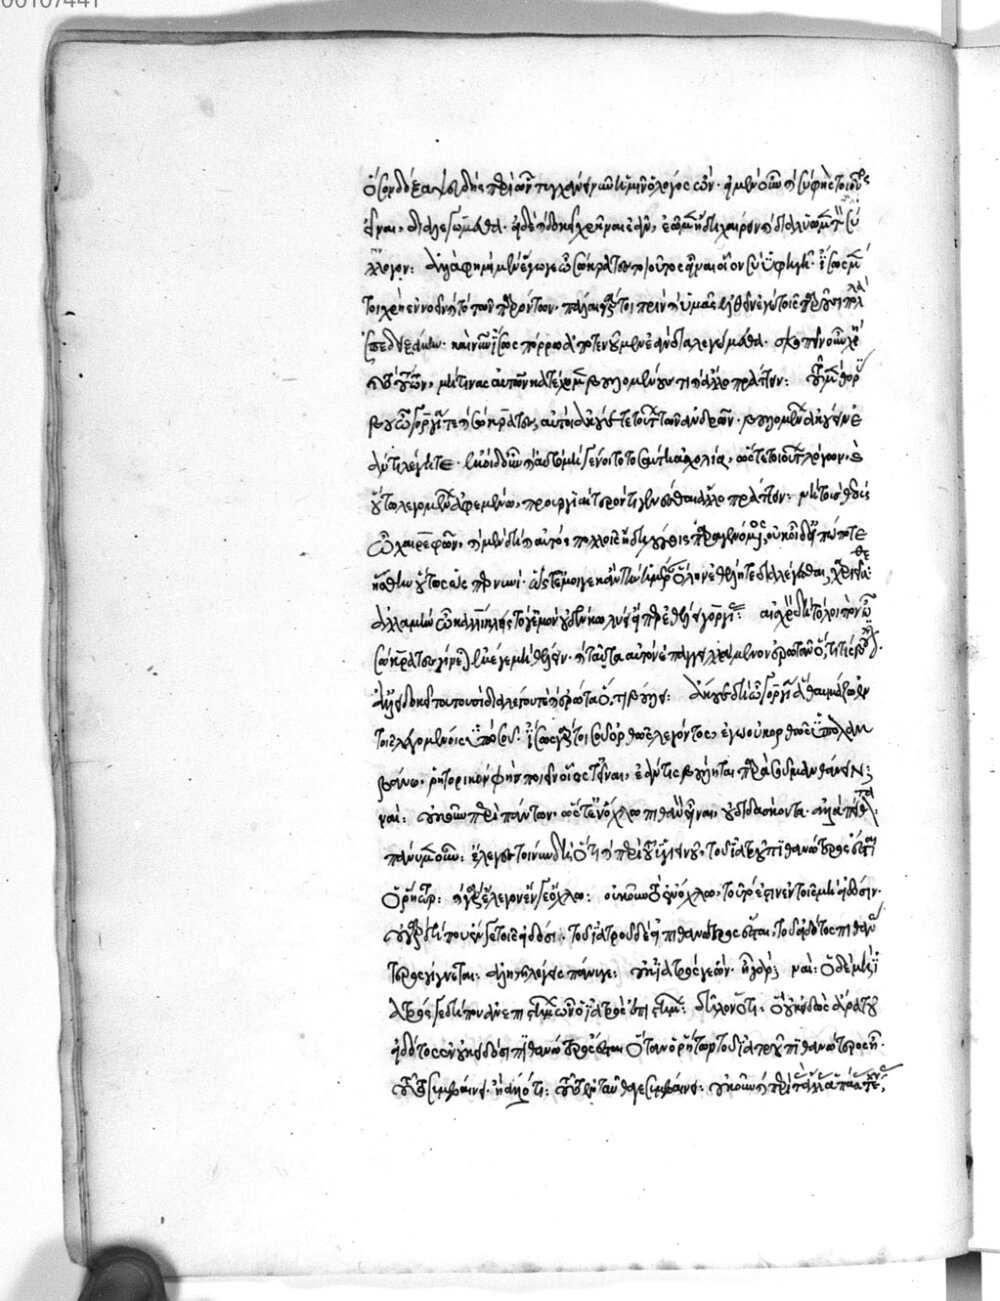 ὅσον δόξα ψευδὴς περὶ ὧν τυγχάνει νῦν ἡμῖν ὁ λόγος ὤν. εἰ μὲν οὖν καὶ σὺ φὴς τοιοῦτος
εἶναι, διαλεγώμεθα. εἰ δὲ καὶ δοκεῖ χρῆναι ἐᾶν, ἐῶμεν ἤδη χαίρειν καὶ διαλύωμεν τὸν
λόγον: ἀλλὰ φημὶ μὲν ἔγωγε ὦ σώκρατες καὶ αὐτὸς εἶναι οἷον σὺ ὑφηγῇ. ἴσως μέν
τοι χρὴ ἐννοεῖν καὶ τὸ τῶν παρόντων. πάλαι γάρ τοι πρὶν καὶ ὑμᾶς ἐλθεῖν ἐγὼ τοῖς παροῦσι πολλὰ
ἐπεδειξάμην. καὶ νῦν ἴσως πόρρω ἀποτενοῦμεν ἐὰν διαλεγώμεθα. σκοπεῖν οὖν χρὴ
τὸ τούτων, μή τινας αὐτῶν κατέχομεν βουλομένους τι καὶ ἄλλο πράττειν: τοῦ μὲν θορύ
βου ὦ γοργία τε καὶ σώκρατες, αὐτοὶ ἀκούετε τούτων τῶν ἀνδρῶν. βουλομένων ἀκούειν ἐ
άν τι λέγητε. ἐμοὶ δ' οὖν καὶ αὐτῷ μὴ γένοιτο τοσαύτη ἀσχολία, ὥστε τοιούτων λόγων, καὶ
οὕτω λεγομένων ἀφεμένῳ, προυργιαίτερόν τι γενέσθαι ἄλλο πράττειν: νὴ τοὺς θεοὺς
ὦ χαιρεφῶν, καὶ μὲν δὴ καὶ αὐτὸς πολλοῖς ἤδη λόγοις παραγενόμενος, οὐκ οἶδ' εἰ πώποτε
ἥσθην οὕτως ὥσπερ νυνί. ὥστε ἔμοιγε κἂν τὴν ἡμέραν ὅλην ἐθέλητε διαλέγεσθαι, χαριεῖσθε:
ἀλλὰ μὴν ὦ καλλίκλεις τό γ' ἐμὸν οὐδὲν κωλύει εἴπερ ἐθέλει γοργίας: αἰσχρὸν δὴ τὸ λοιπὸν ὦ
σώκρατες γίγνεται ἐμέ γε μὴ ἐθέλειν. καὶ ταῦτα αὐτὸν ἐπαγγειλάμενον ἐρωτᾶν ὅ, τι τις βούλεται.
ἀλλ' εἰ δοκεῖ τουτοισὶ διαλέγου τε καὶ ἐρώτα ὅ, τι βούλει: ἄκουε δὴ ὦ γοργία ἃ θαυμάζω ἐν
τοῖς λεγομένοις ὑπὸ σοῦ. ἴσως γάρ τοι σοῦ ὀρθῶς λέγοντος, ἐγὼ οὐκ ὀρθῶς ὑπολαμ
βάνω. ῥητορικὸν φὴς ποιεῖν οἷός τ' εἶναι, ἐάν τις βούληται παρὰ σοῦ μανθάνειν;
ναί: οὐκοῦν περὶ πάντων, ὥστ' ἐν ὄχλῳ πιθανὸν εἶναι, οὐ διδάσκοντα. ἀλλὰ πείθοντα.
πάνυ μὲν οὖν: ἔλεγες τοι νῦν δὴ, ὅτι καὶ περὶ τοῦ ὑγιεινοῦ, τοῦ ἰατροῦ πιθανώτερος ἔσται
ὁ ῥήτωρ: καὶ γὰρ ἔλεγον ἔν γε ὄχλῳ: οὐκοῦν τὸ ἐν ὄχλῳ, τοῦτό ἐστιν ἐν τοῖς μὴ εἰδόσιν.
οὐ γὰρ δήπου ἔν γε τοῖς εἰδόσι. τοῦ ἰατροῦ δὲ εἰ πιθανώτερος ἔσται, τοῦ εἰδότος πιθανώ
τερος γίγνεται: ἀληθῆ λέγεις πάνυ γε: οὐκ ἰατρός γε ὤν. ἦ γάρ; ναί: ὁ δὲ μὴ ἰ
ατρός γε δήπου ἀνεπιστήμων ὧν ὁ ἰατρὸς ἐπιστήμων: δῆλον ὅτι. ὁ οὐκ εἰδὼς ἄρα τοῦ
εἰδότος ἐν οὐκ εἰδόσι πιθανώτερος ἔσται ὅταν ὁ ῥήτωρ τοῦ ἰατροῦ πιθανώτερος ᾖ.
τοῦτο συμβαίνει. ἢ ἄλλό τι: τοῦτο ἐνταῦθά γε συμβαίνει. οὐκοῦν καὶ περὶ τὰς ἄλλας ἁπάσας τέχνας,